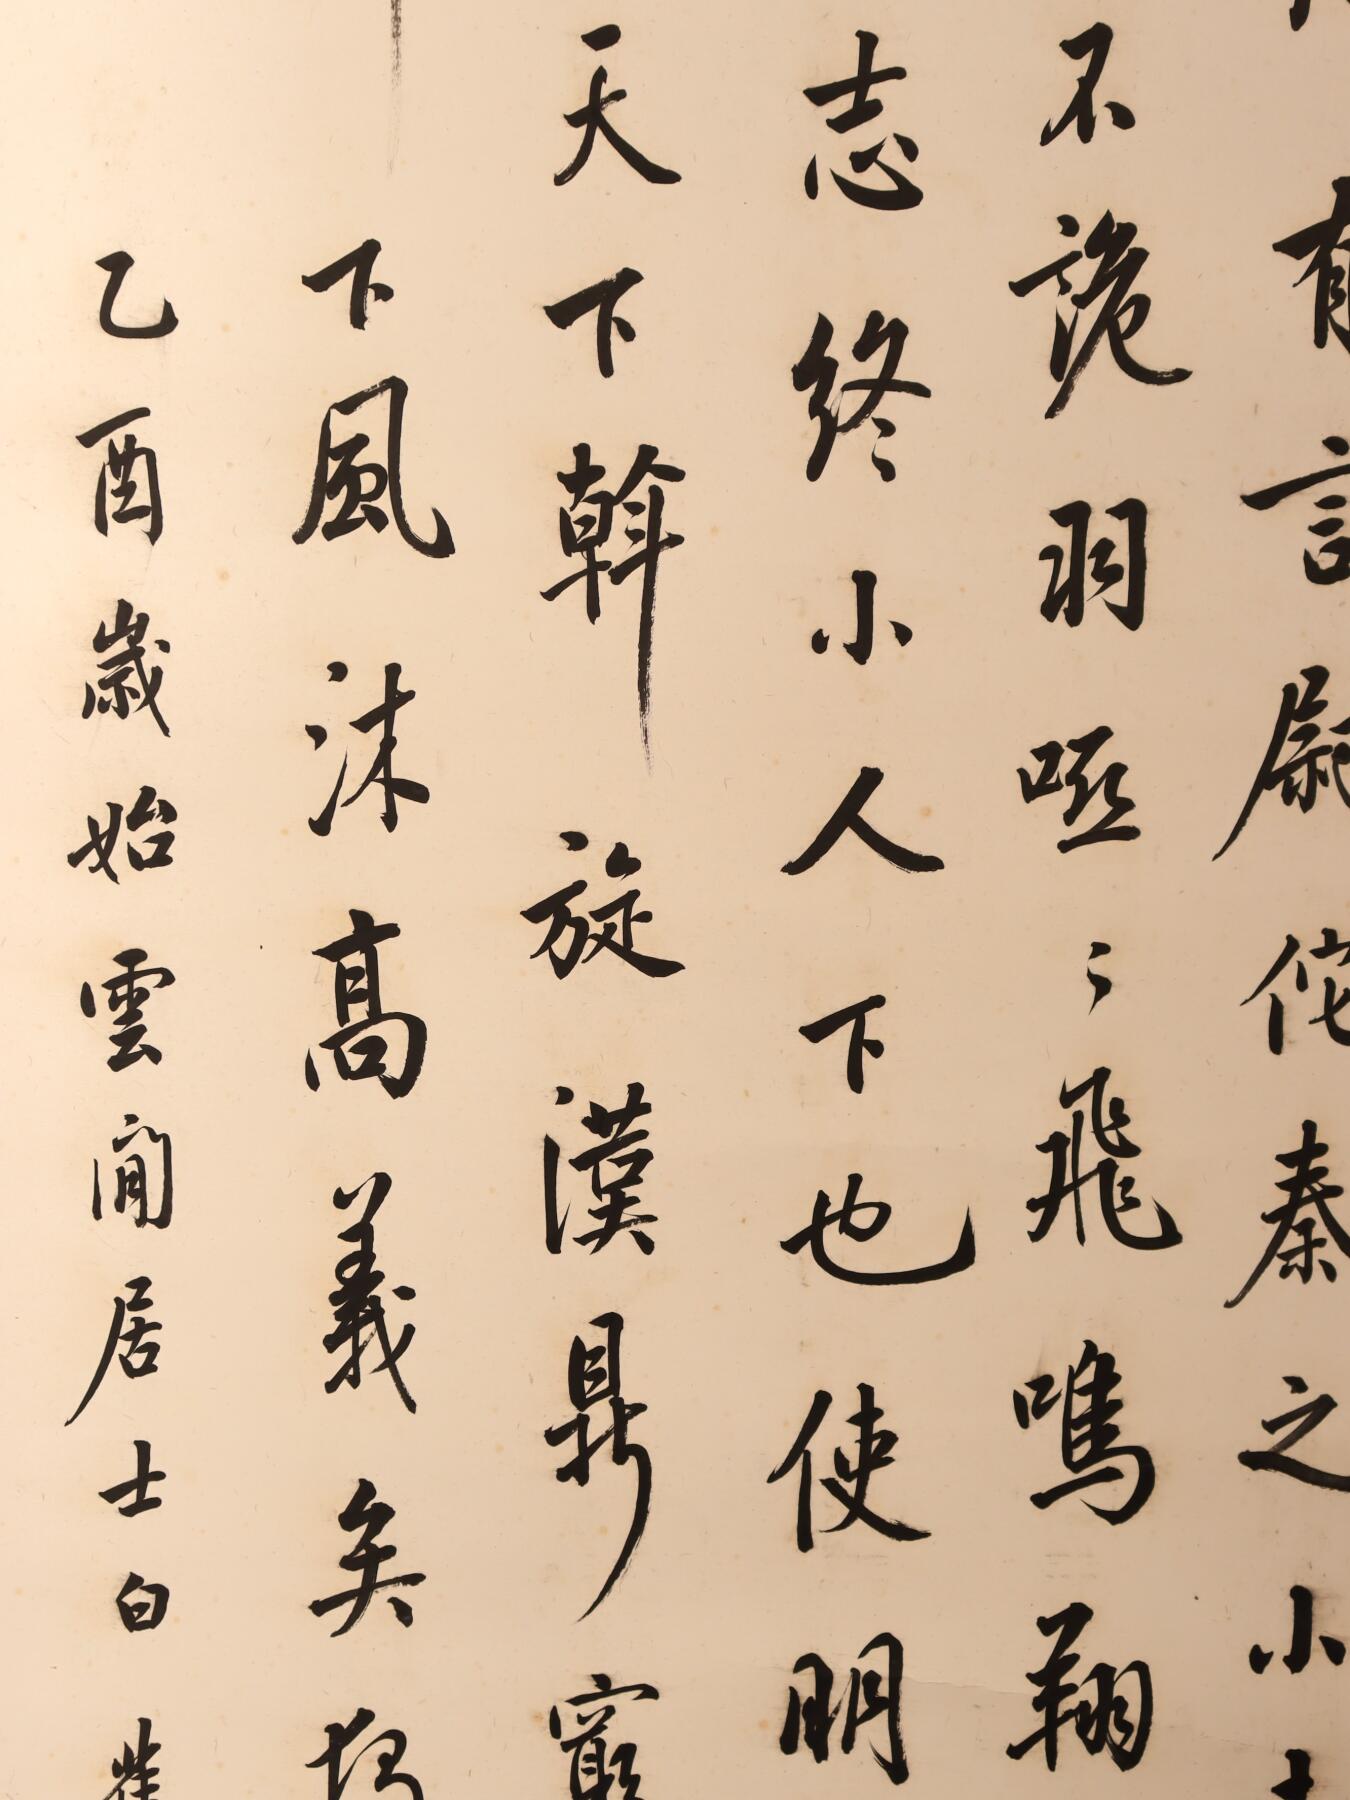 有言尉佗秦之小
不詭羽啞々飛鳴翔
志終小人下也使明
天下斡旋漢鼎
下風沫高義矣
乙酉歲始雲間居士白